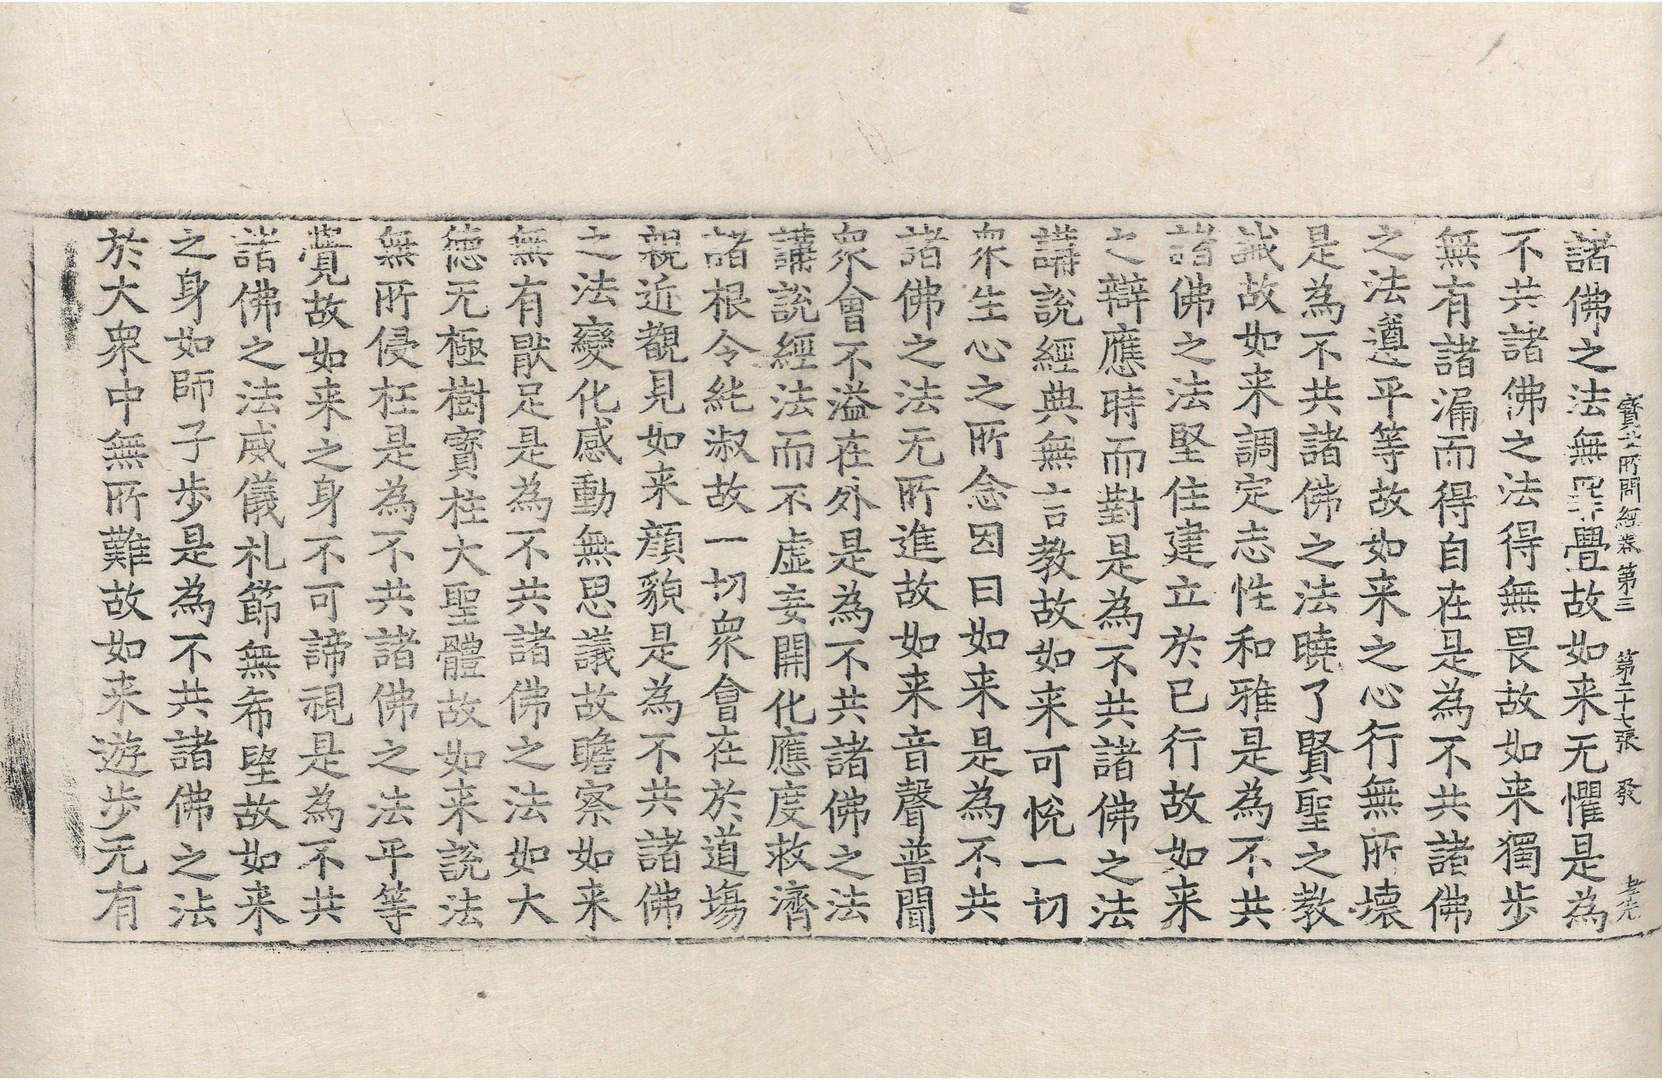 寳女所問經卷第三 第二十七張 發
諸佛之法無罪疊故如来无懼是為
不共諸佛之法得無畏故如来獨步
無有諸漏而得自在是為不共諸佛
之法遵平等故如来之心行無所壞
是為不共諸佛之法曉了賢聖之教
誡故如来調定志性和雅是為不共
諸佛之法堅住建立於已行故如来
之辯應時而對是為不共諸佛之法
講說經典無言教故如来可悅一切
衆生心之所念因曰如来是為不共
諸佛之法无所進故如来音聲普聞
衆會不溢在外是為不共諸佛之法
講說經法而不虛妄開化應度救濟
諸根令純淑故一切衆會在於道塲
親近觀見如来顔貌是為不共諸佛
之法變化感動無思議故瞻察如来
無有猒足是為不共諸佛之法如大
德无極樹寳柱大聖體故如来說法
無所侵枉是為不共諸佛之法平等
覺故如来之身不可諦視是為不共
諸佛之法威儀礼節無希望故如来
之身如師子步是為不共諸佛之法
於大衆中無所難故如来遊步元有